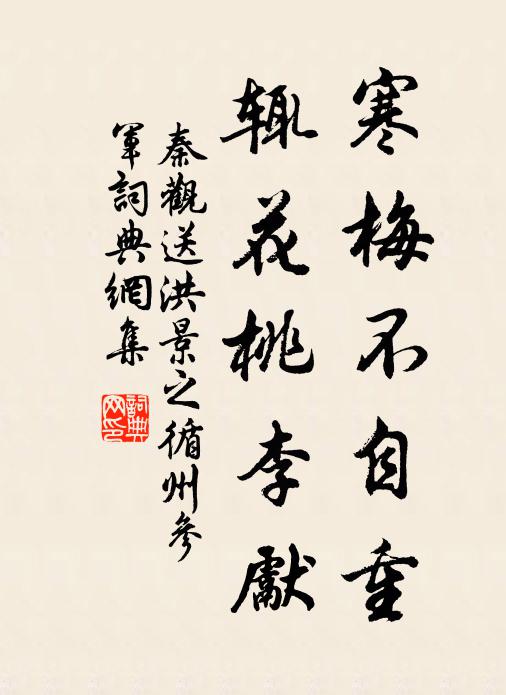 寒梅不自重
辄花桃李獻
秦觀送洪景之循州參
軍詞典網集
詞典网印